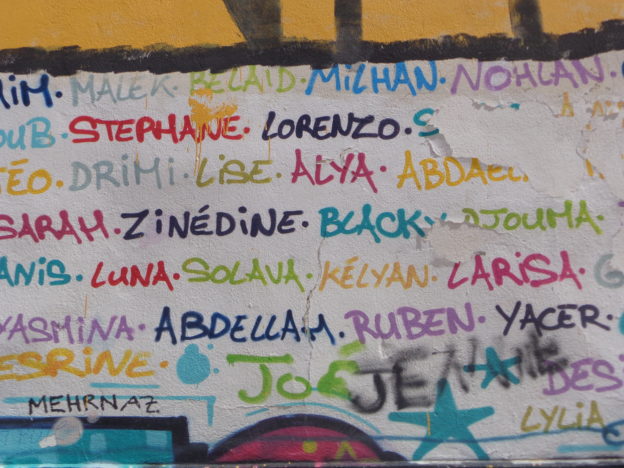 IM. MALEK. BELAID. MILHAN. NOHLAN.
OUB. STEPHANE. LORENZO. S
ÉO. DRIMI. LISE. ALYA. ABDAEL
SARAH. ZINÉDINE. BLACK. DJOUMA.
ANIS. LUNA. SOLAVA. KÉLYAN. LARISA. G
YASMINA. ABDELLAH. RUBEN. YACER.
ESRINE. JOÉ DES
MEHRNAZ LYLIA